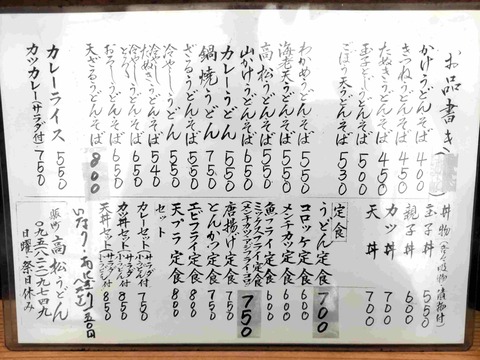 お品書き
かけうどんそば 400
きつねうどんそば 450
たぬきうどんそば 450
玉子とじうどんそば 500
ごぼう天うどんそば 530
わかめうどんそば 550
海老天うどんそば 550
高松うどんそば 550
山かけうどんそば 650
カレーうどん 550
鍋焼うどん 750
ざるうどんそば 550
冷やしうどん 550
冷やしたぬきうどんそば 540
冷やしとろろうどんそば 650
おろしうどんそば 650
天ざるうどんそば 800
カレーライス 550
カツカレー(サラダ付) 750
丼物(みそ汁 漬物付)
玉子丼 550
親子丼 600
カツ丼 700
天丼 700
定食
うどん定食 700
コロッケ定食 600
メンチカツ定食 600
魚フライ定食 600
ミックスフライ定食 750
唐揚げ定食 700
とんかつ定食 750
エビフライ定食 800
天プラ定食 800
セット
カレーセット 750
カツ丼セット 850
天丼セット 850
いなり
飯町 高松うどん
日曜・祭日休み